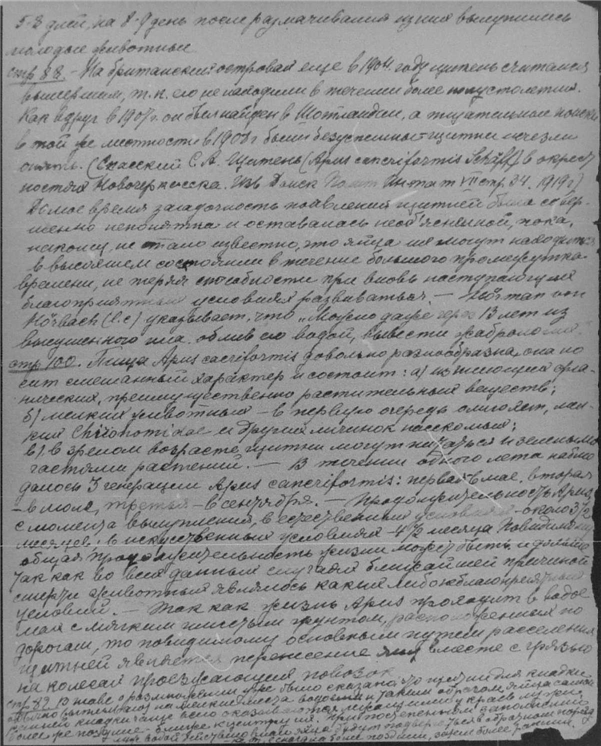 5-8 дней, на 8-9 день после размачивания из ила вылупились
молодые животные.
стр 88 - На британских островах еще в 1904 году щитень считался
вымершим, т.к. его не находили в течении более полустолетия.
Как вдруг в 1907 г. он был найден в Шотландии, а тщательные поиски
в той же местности в 1908 г были безуспешны - щитни исчезли
опять. (Спасский С.А. Щитень (Apus cancriformis Schäff) в окрест
ностях Новочеркасска. Изв Донск Инта т VII стр. 84. 1919 г)
Долгое время загадочность появления щитней была совер-
шенно непонятна и оставалась необ'яснимой, пока,
наконец, не стало известно, что яйца их могут находиться
в высохшем состоянии в течение большого промежутка
времени, не теряя способности при вновь наступающих
благоприятных условиях развиваться. -
(l.c) указывает, что "Можно даже через 13 лет из
высушенного ила, облив его водой, вывести жаброногих"
стр. 100. Пища Apus cancriformis довольно разнообразна, она но
сит смешанный характер и состоит: а) из гниющих орга-
нических, преимущественно растительных веществ;
б) мелких животных - в первую очередь олигохет, личи-
нки Chironomidae и других личинок насекомых;
в) в зрелом возрасте щитни могут питаться и зелеными
частями растений. - В течении одного лета наблю
далось 3 генерации Apus cancriformis: первая в мае, вторая
- в июле, третья - в сентябре. - Продолжительность Apus
с момента вылупления, в естественных условиях - около 3½
месяцев; в искусственных условиях - 4½ месяца
общая продолжительность жизни может быть и дольше
так как во всех данных случаях ближайшей причиной
смерти животных являлось какие либо неблагоприятные
условия. - Так как жизнь Apus проходит в водое
мах с мягким илистым грунтом, расположенных по
дорогам, то повидимому основным путем расселения
щитней является перенесение яиц вместе с грязью
на колесах проезжающих повозок
стр 82 В главе о размножении Apus было сказано, что при
кладки чаще всего
более поздние